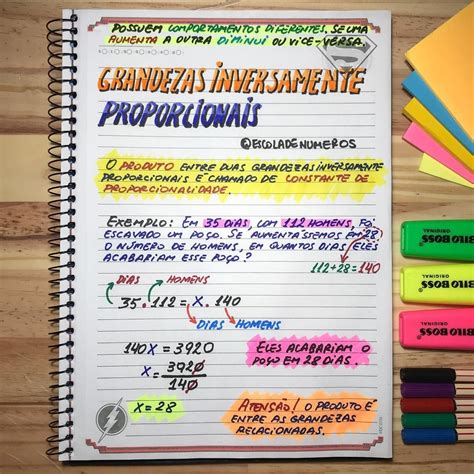 POSSUEM COMPORTAMENTOS DIFERENTES. SE UMA
AUMENTA A OUTRA DIMINUI OU VICE-VERSA.
GRANDEZAS INVERSAMENTE
PROPORCIONAIS
@ESCOLADENUMEROS
O PRODUTO ENTRE DUAS GRANDEZAS INVERSAMENTE
PROPORCIONAIS É CHAMADO DE CONSTANTE DE
PROPORCIONALIDADE.
EXEMPLO: EM 35 DIAS, COM 112 HOMENS, FOI
ESCAVADO UM POÇO. SE AUMENTÁSSEMOS EM 28
O NÚMERO DE HOMENS, EM QUANTOS DIAS ELES
ACABARIAM ESSE POÇO?
112+28=140
DIAS HOMENS
35 . 112 = X . 140
DIAS HOMENS
140X = 3920
X = 3920
140
X = 28
ELES ACABARIAM O
POÇO EM 28 DIAS.
ATENÇÃO! O PRODUTO É
ENTRE AS GRANDEZAS
RELACIONADAS.
BOSS
ORIGINAL
STABILO BOSS
ORIGINAL
STABILO BOSS
ORIGINAL